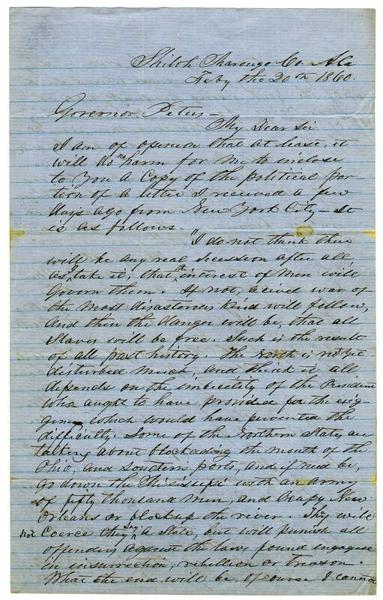 Shiloh Marengo Co. Ala
Feby the 20th 1860.
Governor Pettus—
My Dear Sir
I am of opinion that at least, it
will do no harm for me to inclose
to You a Copy of the political por
tion of a letter I received a few
days ago from New York City — It
is as follows
"I do not think there
will be any real secession after all,
as I take it, that the interest of Men will
govern them. If not, a civil war of
the most disastrous kind will follow,
and then the danger will be, that all
Slaves will be free. Such is the result
of all past history. The North is not yet
disturbed much, and think it all
depends on the imbecility of the President
who ought to have provided for the exi-
gency which would have prevented the
difficulty. Some of the Northern States are
talking about blockading the mouth of the
Ohio, and Southern ports, and if need be,
go down the Mississippi with an army
of fifty thousand men, and occupy New
Orleans or block up the river. They will
not Coerce they say a State, but will punish all
offending against the laws found engaged
in insurrection, rebellion or treason.
What the end will be, of course I cannot